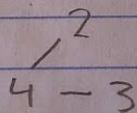 2
4 - 3